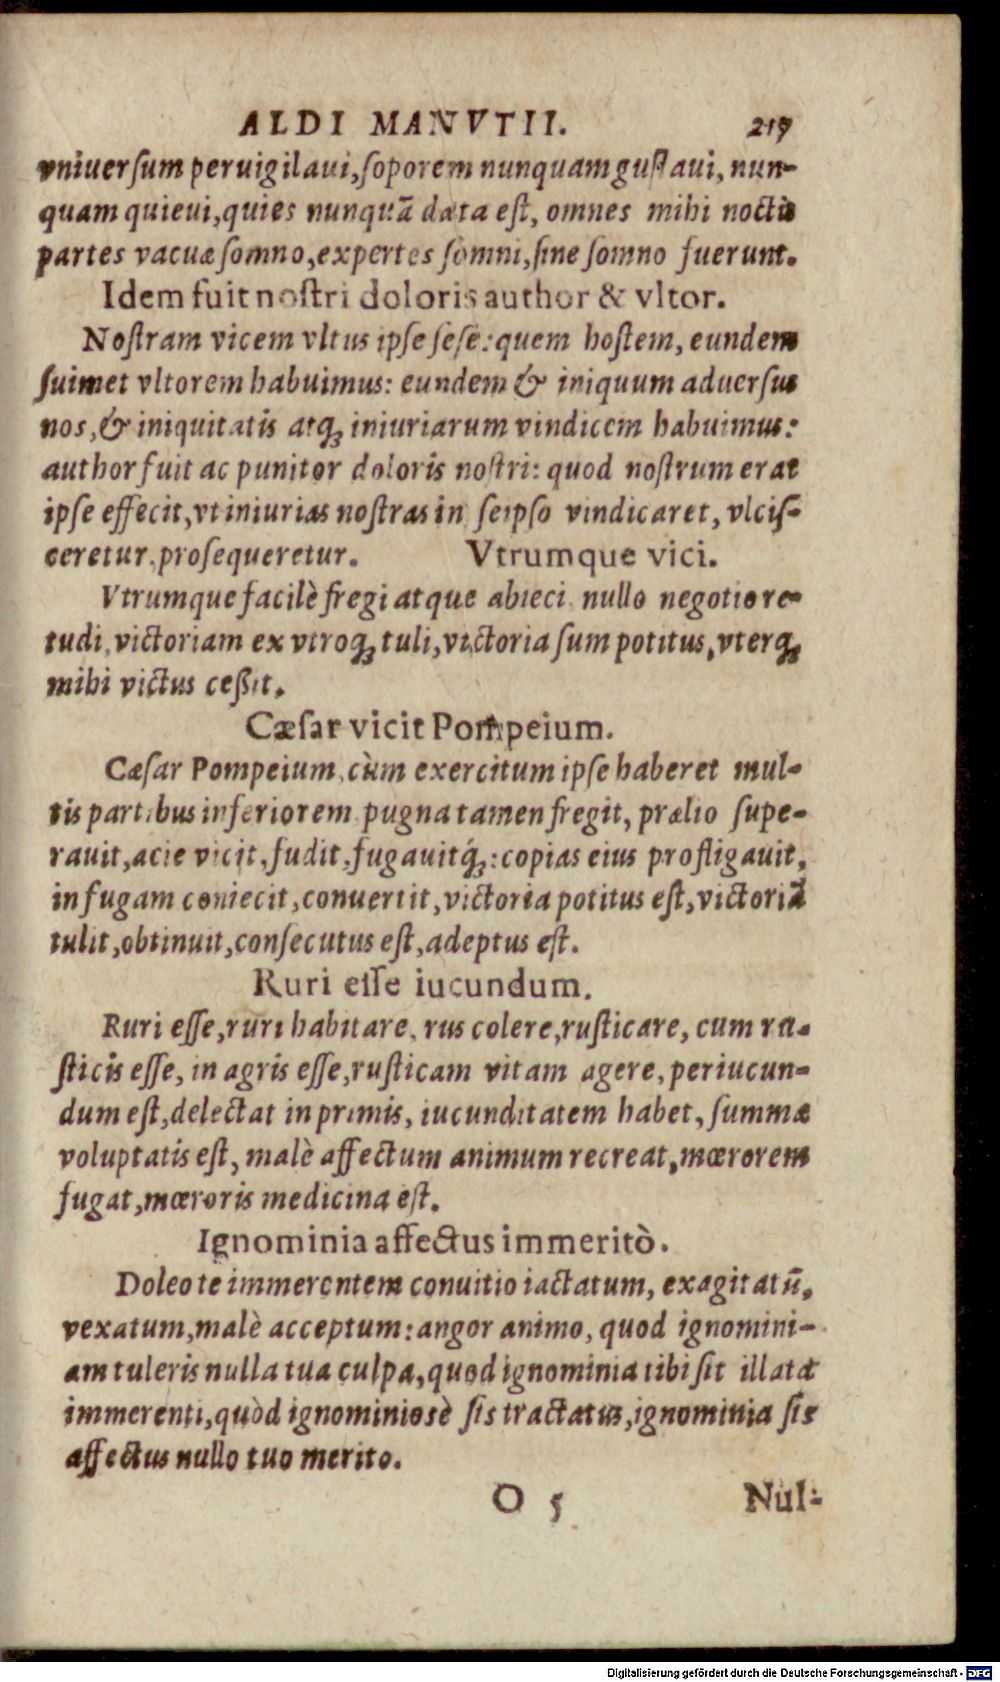 ALDI MANVTII. 217
vniuersum peruigilaui, soporem nunquam gustaui, nun-
quam quieui, quies nunquã data est, omnes mihi noctis
partes vacuæ somno, expertes somni, sine somno fuerunt.
Idem fuit nostri doloris author & vltor.
Nostram vicem vltus ipse sese: quem hostem, eundem
suimet vltorem habuimus: eundem & iniquum aduersus
nos, & iniquitatis atq; iniuriarum vindicem habuimus:
author fuit ac punitor doloris nostri: quod nostrum erat
ipse effecit, vt iniurias nostras in seipso vindicaret, vlcis-
ceretur, prosequeretur. Vtrumque vici.
Vtrumque facilè fregi atque abieci, nullo negotio re-
tudi, victoriam ex vtroq; tuli, victoria sum potitus, vterq;
mihi victus cessit.
Cæsar vicit Pompeium.
Cæsar Pompeium, cùm exercitum ipse haberet mul-
tis partibus inferiorem pugna tamen fregit, prælio supe-
rauit, acie vicit, fudit, fugauitq́;: copias eius profligauit,
in fugam coniecit, conuertit, victoria potitus est, victoriã
tulit, obtinuit, consecutus est, adeptus est.
Ruri esse iucundum.
Ruri esse, ruri habitare, rus colere, rusticare, cum ru-
sticis esse, in agris esse, rusticam vitam agere, periucun-
dum est, delectat in primis, iucunditatem habet, summæ
voluptatis est, malè affectum animum recreat, mœrorem
fugat, mœroris medicina est.
Ignominia affectus immeritò.
Doleo te immerentem conuitio iactatum, exagitatũ,
vexatum, malè acceptum: angor animo, quod ignomini-
am tuleris nulla tua culpa, quod ignominia tibi sit illata
immerenti, quòd ignominiosè sis tractatus, ignominia sis
affectus nullo tuo merito.
O 5 Nul-
Digitalisierung gefördert durch die Deutsche Forschungsgemeinschaft - DFG